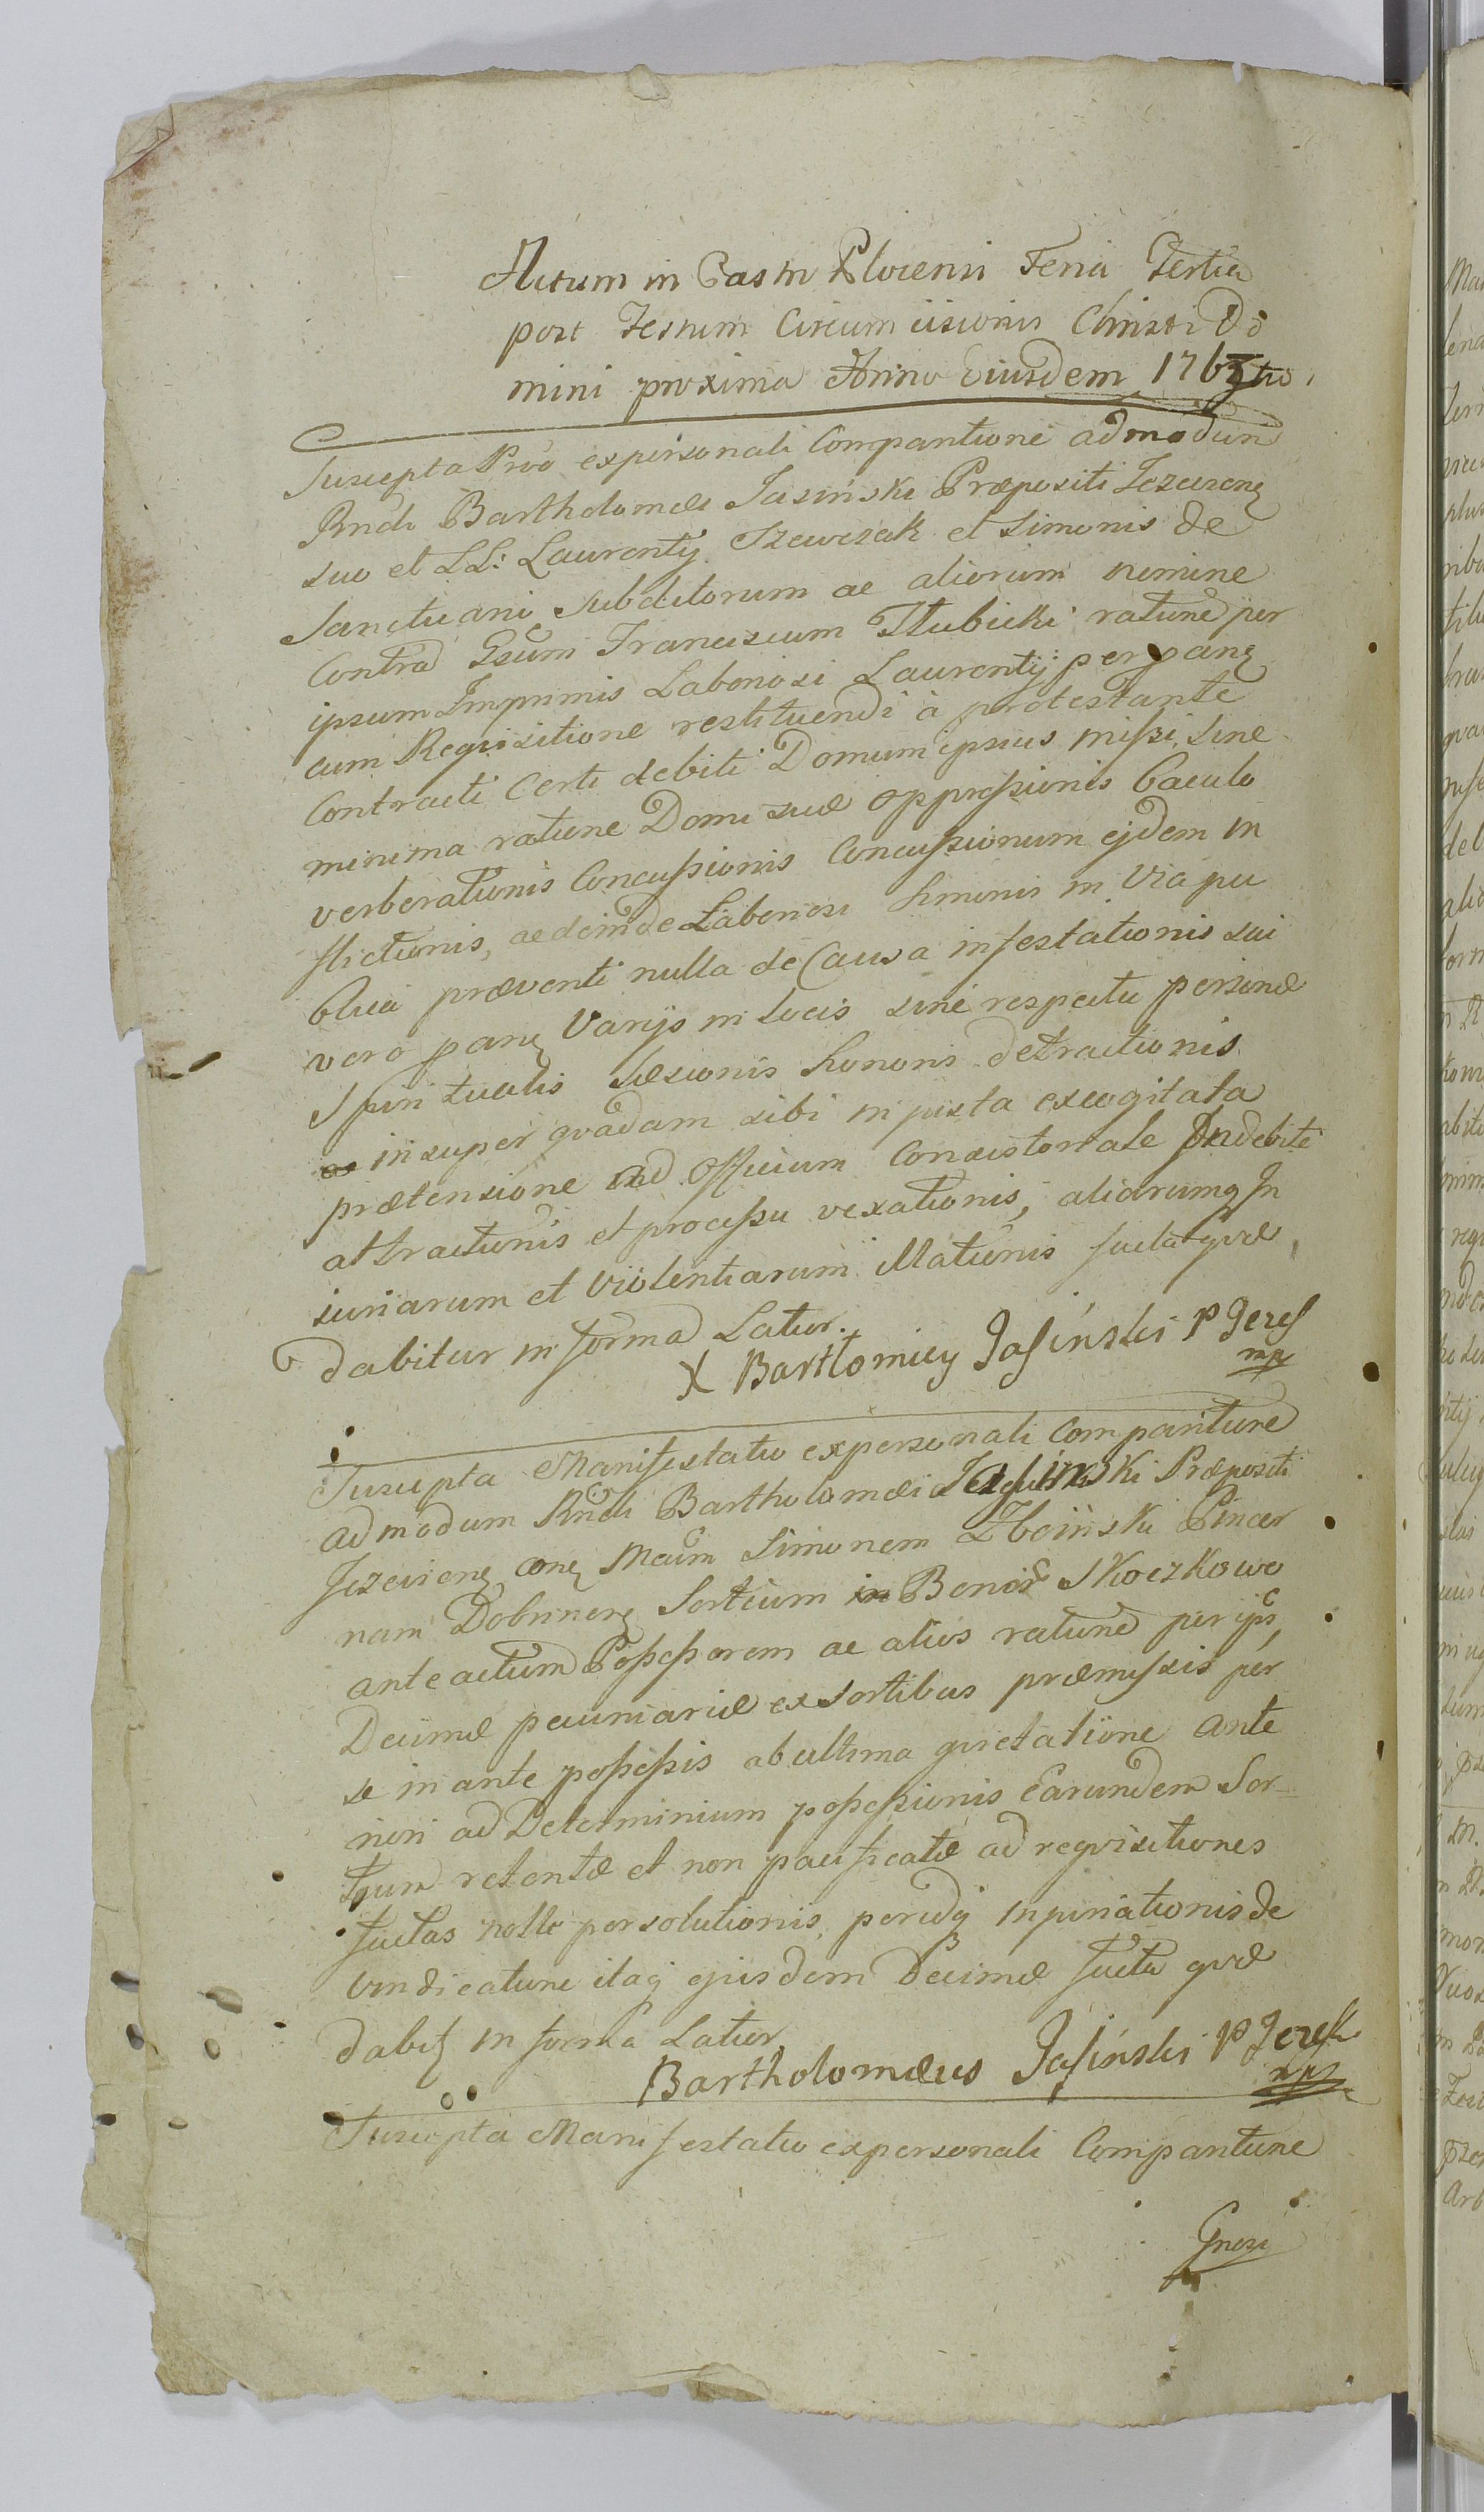 Actum in Castro Plocensi Feria Tertia
post Festum Circumcisionis Christi Do
mini proxima Anno Eiusdem 1763tio
Suscepta Prōō ex personali Comparitione admodum
Rndi Bartholomæi Jasinski Præpositi Jezeuenę
suo et LL: Laurentij Szewczak et Simonis de
Sanctuarij subditorum ac aliorum nomine
Contra Gsum Franciscum Tłubicki ratione per
ipsum Imprimis Laboriosi Laurentij per panę
cum Requisitione restituendi à protestante
Contracti Certi debiti Domum ipsius missi sine
minima ratione Domi suæ oppressionis baculo
verberationis Concussionis Concussionum ejdem in
flictionis, ac deinde Laboriosi Simonis in Via pu
blica præventi nulla de Causa infestationis sui
vero panę Varijs in locis sine respectu personæ
Spiritualis læsionis honoris detractionis
insuper qvadam sibi injusta excogitata
prætensione ad Officium Consistoriale Indebite
attractionis et processu vexationis, aliarumq In
iuriarum et Violentiarum illationis facta qvæ
dabitur in forma Latior.
X Bartłomiey Jasinski P Jezes
mp
Suscepta Manifestatio ex personali Comparitione
admodum Rndi Bartholomæi Jasinski Præpositi
Jezevienę conę Mcum Simonem Zboinski Pincer
nam Dobrinenę Sortium in Bonis Skoczkowo
anteactum Possessorem ac alios ratione per ips
Decimæ pecuniariæ ex Sortibus præmissis per
se in ante possessis ab ultima qvietatione ante
riori ad Determinium possessionis Earundem Sor-
tium retentæ et non pacificatæ ad reqvisitiones
factas nolle persolutionis, perudq inpiriationis de
vindicatione itaq ejusdem Decimæ facta qvæ
dabitę in forma Latior
Bartholomæus Jasinski P Jezesk
mp
Suscepta Manifestatio ex personali Comparitione
Gnosi